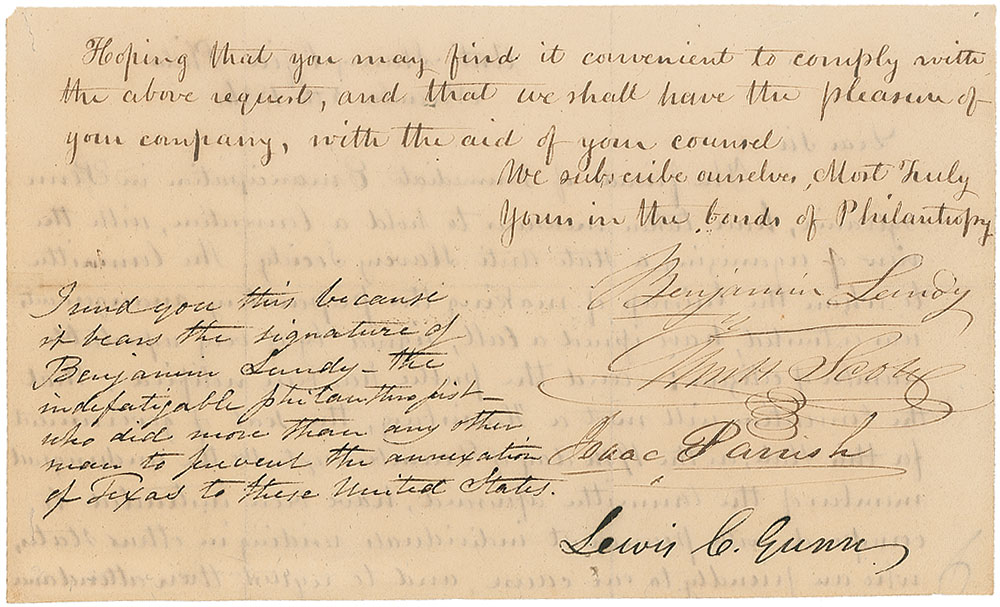 Hoping that you may find it convenient to comply with
the above request, and that we shall have the pleasure of
your company, with the aid of your counsel
We subscribe ourselves, Most Truly
Yours in the bonds of Philantropy
Benjamin Lundy
Isaac Parrish
Lewis C. Gunn
I send you this because
it bears the signature of
Benjamin Lundy – the
indefatigable philanthropist –
who did more than any other
man to prevent the annexation
of Texas to these United States.